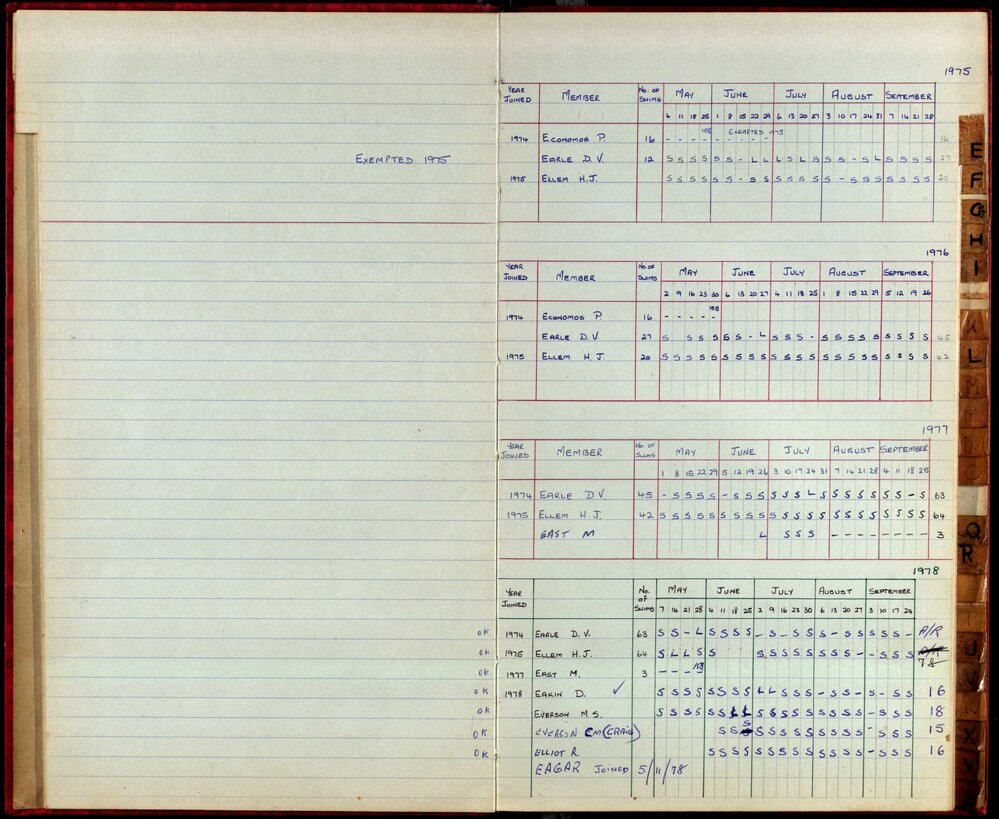 Exempted 1975
1975
Year Joined Member No. of Swims May June July August September
4 11 18 25 1 8 15 22 29 6 13 20 27 3 10 17 24 31 7 14 21 28
1974 Economos P. 16 - - - - 158 Exempted 1975 16
Earle D.V. 12 S S S S S S - L L L S L S S S - S L S S S S 27
1975 Ellem H.J. S S S S S S - S S S S S S S - S S S S S S S 20
1976
Year Joined Member No. of Swims May June July August September
2 9 16 23 30 6 13 20 27 4 11 18 25 1 8 15 22 29 5 12 19 26
1974 Economos P. 16 - - - - - 158
Earle D.V. 27 S S S S S S - L S S S - S S S S S S S S S 45
1975 Ellem H.J. 20 S S S S S S S S S S S S S S S S S S S S S S 42
1977
Year Joined Member No. of Swims May June July August September
1 8 15 22 29 5 12 19 26 3 10 17 24 31 7 14 21 28 4 11 18 25
1974 Earle D V 45 - S S S S - S S S S S S L S S S S S S S - S 63
1975 Ellem H J. 42 S S S S S S S S S S S S S S S S S S S S S S 64
East M L S S S - - - - - - - - 3
1978
Year Joined No. of Swims May June July August September
7 14 21 28 4 11 18 25 2 9 16 23 30 6 13 20 27 3 10 17 24
OK 1974 Earle D.V. 63 S S - L S S S S - S - S S S - S S S S S - A/R
OK 1975 Ellem H.J. 64 S L L S S S S S S S S S S S - - S S S 78
OK 1977 East M. 3 - - - - 158
OK 1978 Eakin D. ✓ S S S S S S S S L L S S S - S S - S - S S 16
OK Everson M S. S S S S S S L L S S S S S S S S S - S S S 18
OK Everson CM (Craig) S S S S S S S S S S S S - S S S 15
OK Elliot R. S S S S S S S S S S S S S - S S S 16
Eagar Joined 5/11/78
E
F
G
H
I
K
L
M
N
O
Q
R
T
U
X